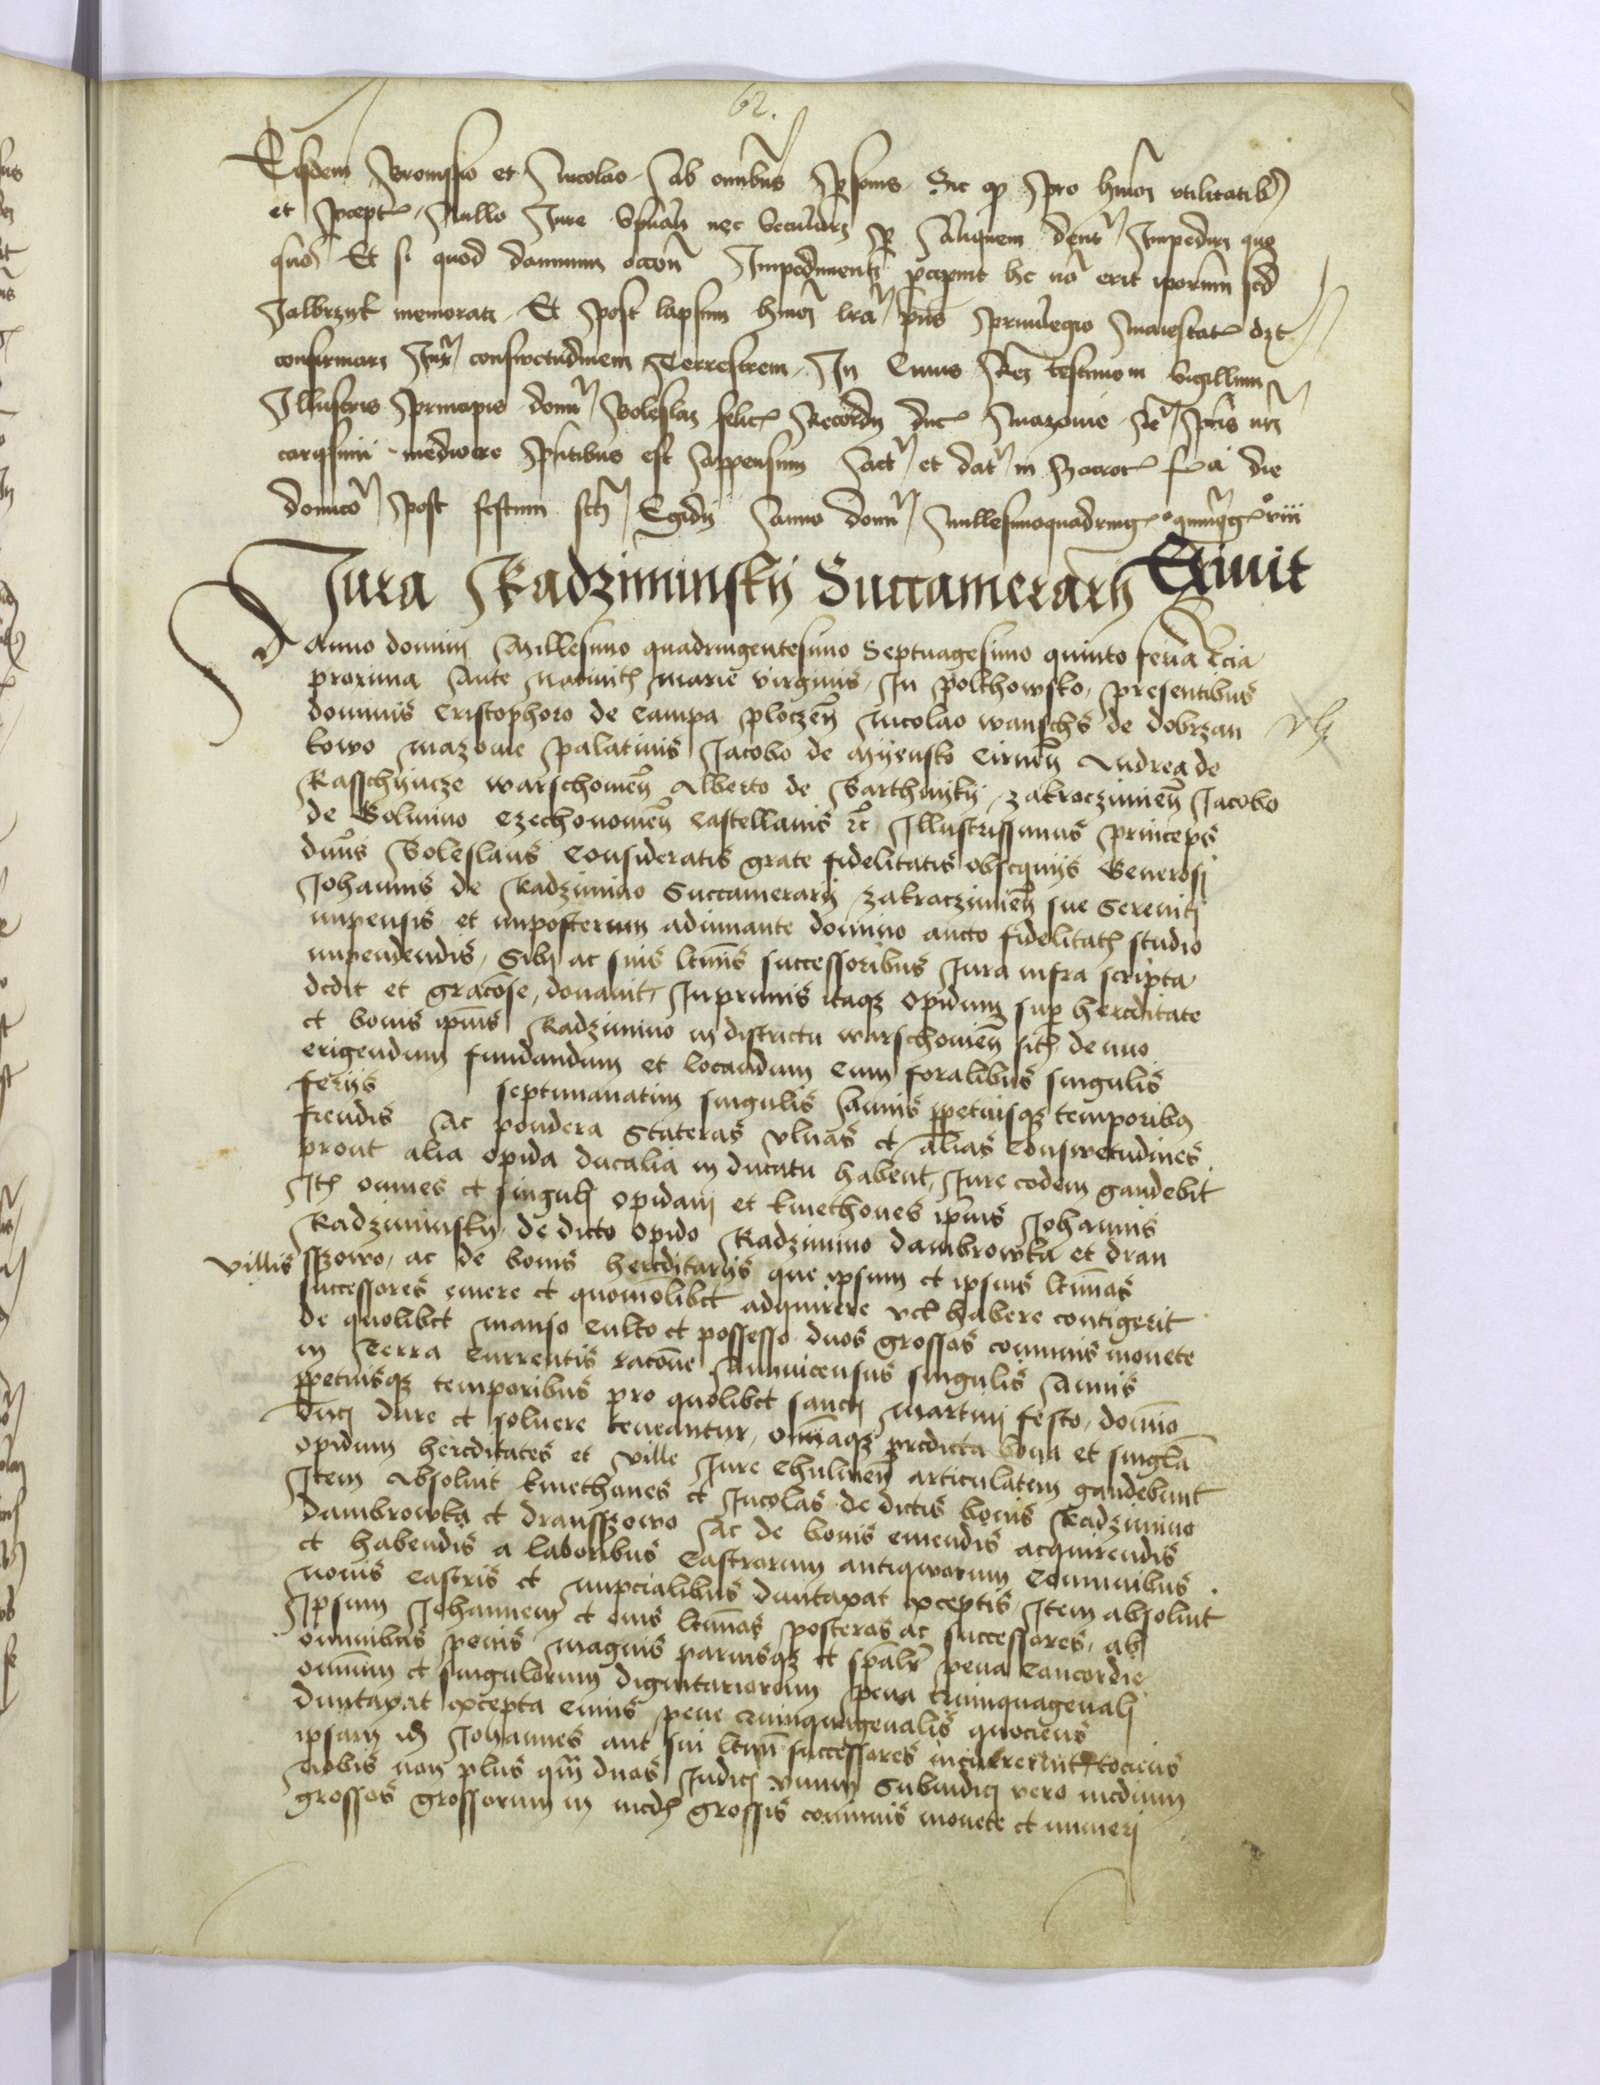 62.
Eisdem Bronissio et Nicolao Ab omnibus Personis Sic qp pro hmoi vtilitatibus
et Nullo Jure nec Seculari per Aliquem Impediri
quod Et si quod damnum occone Impedimenti hc no erit ipsorum sed
memorati Et Post lapsum hmoi pns Priuilegio
confirmari Jux consuetudinem Terrestrem In Cuius Rei testimom Sigillum
Illustris Principis domi Boleslai felic Recordy duc Mazouie
carissimi mediocre Pntibus est Appensum Act et dat in die
domico Post festum scti Egidii Anno domi
Jura Radziminsky Succamerarij Exiuit
Anno domini Millesimo quadringentesimo Septuagesimo quinto feria tercia
proxima Ante Natiuit Marie virginis In Polthowsko presentibus
dominis Cristophoro de Campa Ploczen Nicolao wansch de dobrzan
kowo Mazouie Palatinis Jacobo de Myensko Cirnen Andrea de
Rasschyncze warschouien Alberto de Barthniky zakroczimien Jacobo
de Golmino Czechonomen Castellanis etc Illustrissimus princeps
dnus Boleslaus Consideratis grate fidelitatis obsequijs Generosi
Johannis de Radzimino Succamerarij zakroczimien sue Sereniti
impensis et imposterum adiuuante domino aucto fidelitatis studio
impendendis Sibi ac suis ltimis successoribus Jura infra scripta
dedit et graciose donauit Inprimis itaqz opidum sup hereditate
et bonis ipius Radzimino in districtu warschouien sitis de nuo
erigendum fundandum et locandum Cum foralibus singulis
ferijs septimanatim singulis Annis ppetuisqz temporibus
fiendis Ac pondera Stateras vlnas et alias Consuetudines
prout alia opida ducalia in ducatu habent Jure eodem gaudebit
Itm omnes et singuli opidani et kmethones ipius Johannis
Radziminsky de dicto opido Radzimino dambrowka et dran
villis sszowo ac de bonis hereditarijs que ipsum et ipsius ltimas
successores emere et quomolibet adquirere vel habere contigerit
de quolibet manso Culto et possesso duos grossos comunis monete
in Terra Currentis racone Annuicensus singulis Annis
ppetuisqz temporibus pro quolibet sancti Martini festo domio
duci dare et soluere teneantur omaqz predicta bona et singla
opidum hereditates et ville Jure Chulmen articulatem gaudebunt
Item Absoluit kmethones et Incolas de dictis bonis Radzimino
dambrowka et dransszowo Ac de bonis emendis acquirendis
et habendis a laboribus Castrorum antiquorum Communibus
nouis Castris et nupcialibus duntaxat exceptis Item absoluit
Ipsum Johannem et eius ltimas posteras ac successores ab
omnibus penis magnis paruisqz et spalr pena Concordie
omnium et singulorum dignitariorum pena quinquagenali
duntaxat excepta Cuius pene quinquagenalis quociens
ipsam ids Johannes aut sui ltimi successores incurrerint tociens
nobis non plus qm duos Judici vnum Subiudici vero medium
grossos grossorum in medis grossis comunis monete et numeri